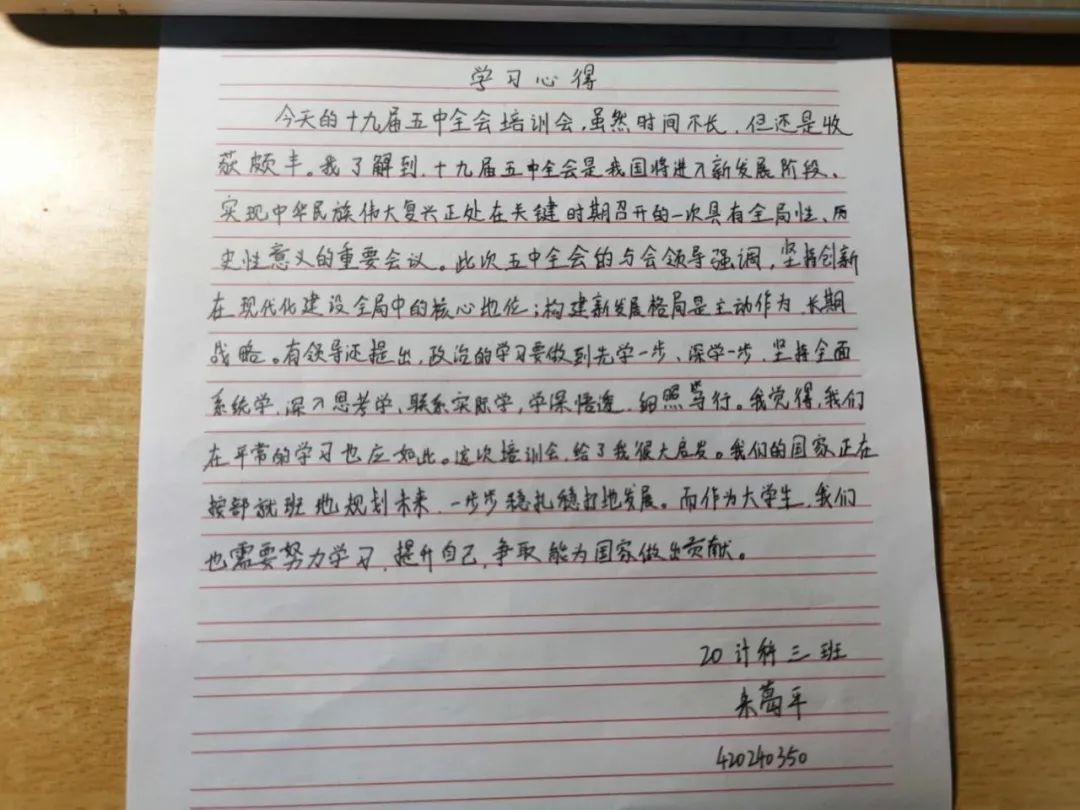 学习心得
今天的十九届五中全会培训会,虽然时间不长,但还是收
获颇丰。我了解到,十九届五中全会是我国将进入新发展阶段、
实现中华民族伟大复兴正处在关键时期召开的一次具有全局性、历
史性意义的重要会议。此次五中全会的与会领导强调,坚持创新
在现代化建设全局中的核心地位;构建新发展格局是主动作为,长期
战略。有领导还提出,政治的学习要做到先学一步、深学一步,坚持全面
系统学,深入思考学,联系实际学,学深悟透,细照笃行。我觉得,我们
在平常的学习也应如此。这次培训会,给了我很大启发。我们的国家正在
按部就班地规划未来,一步步稳扎稳打地发展。而作为大学生,我们
也需要努力学习,提升自己,争取能为国家做出贡献。
20计科三班
平
420240350